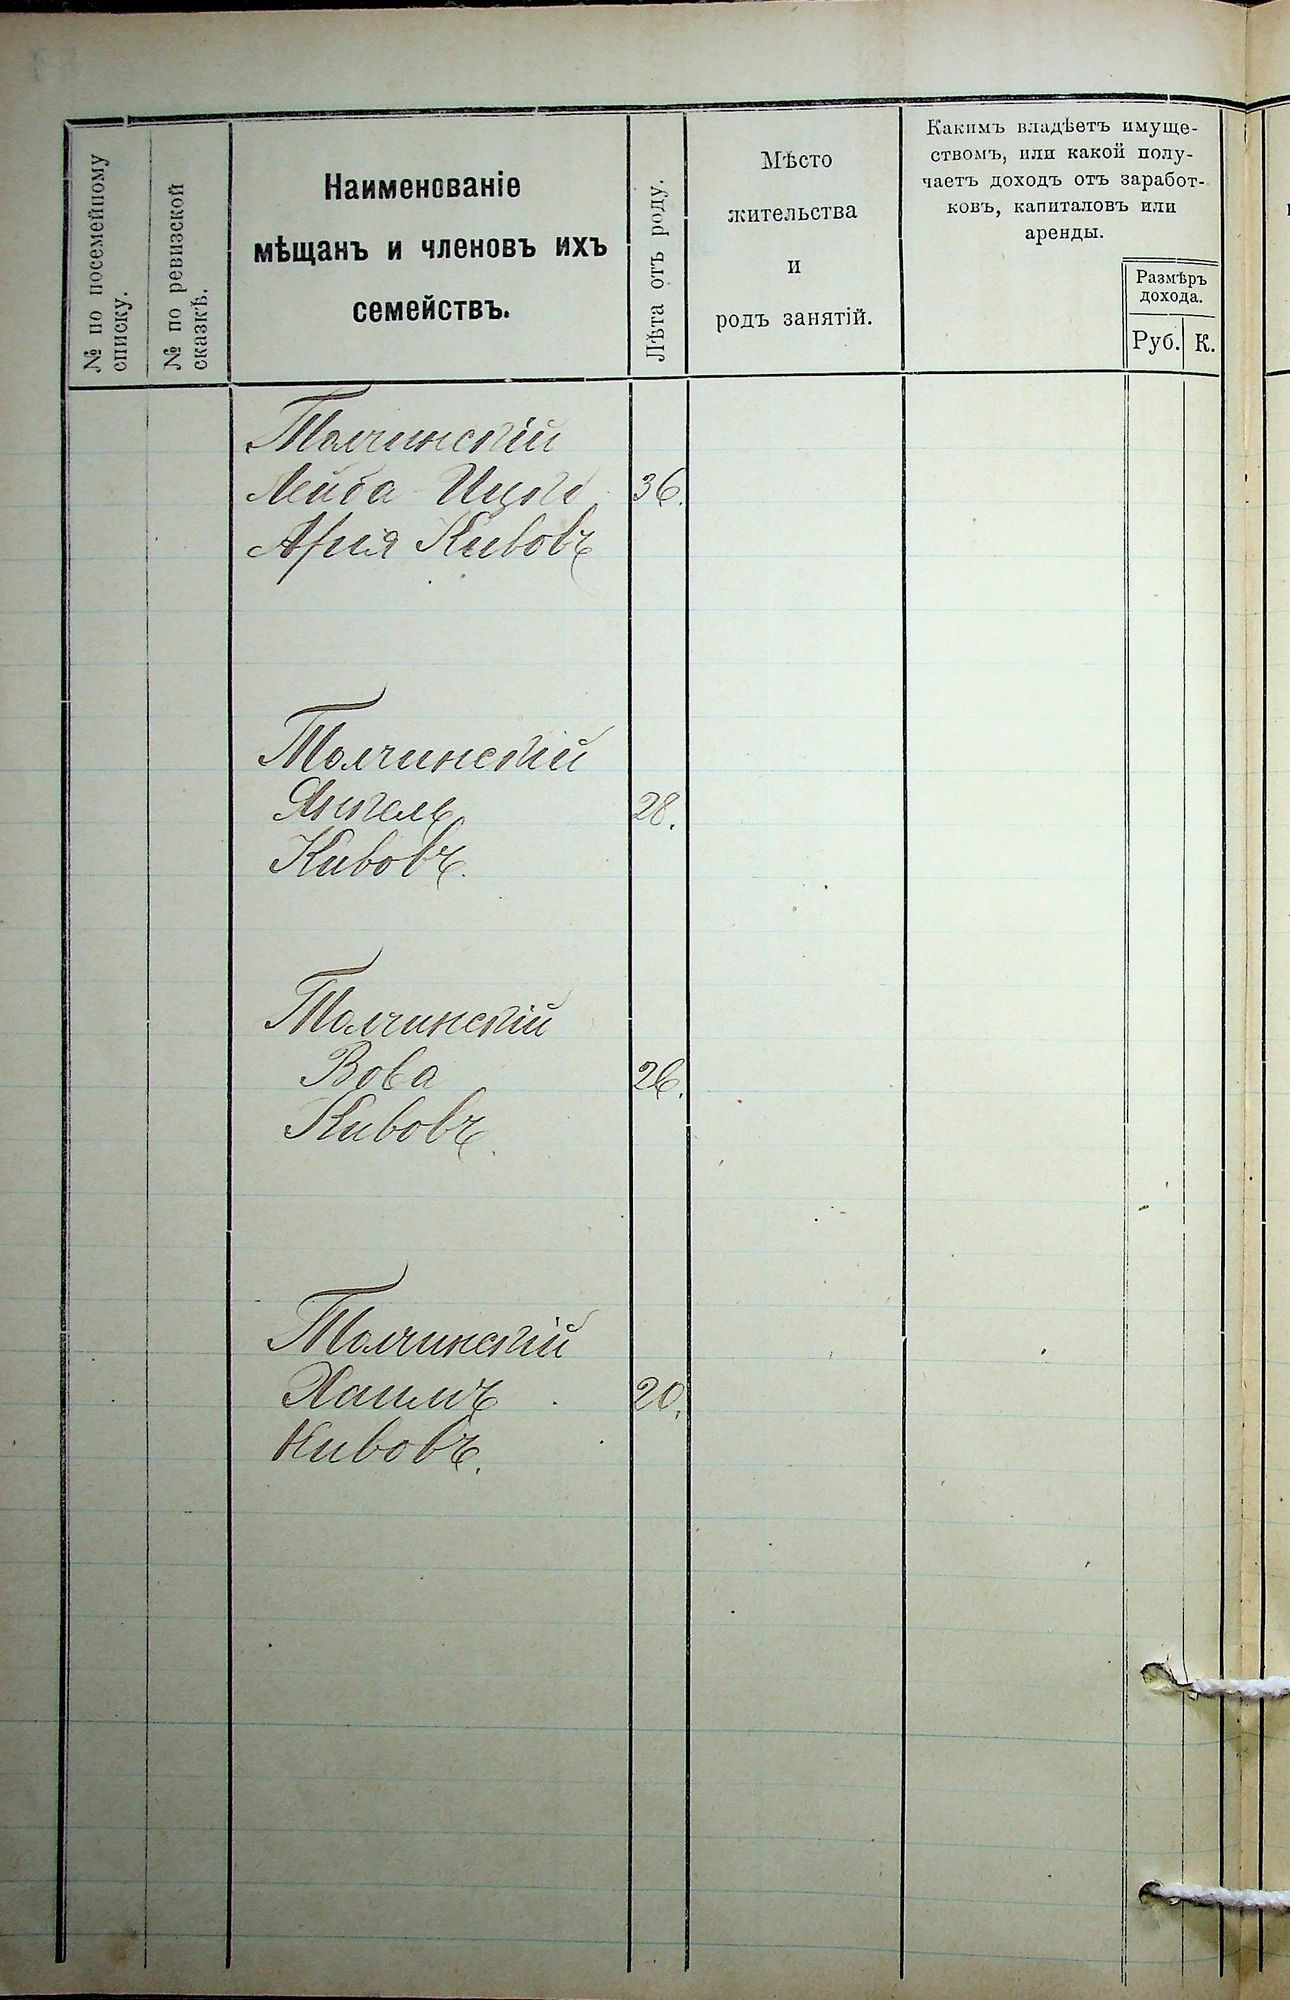 № по посемейному
списку.
№ по ревизской
сказкѣ.
Наименованіе
мѣщанъ и членовъ ихъ
семействъ.
Лѣта отъ роду.
Мѣсто
жительства
и
родъ занятій.
Какимъ владѣетъ имуще-
ствомъ, или какой полу-
чаетъ доходъ отъ заработ-
ковъ, капиталовъ или
аренды.
Размѣръ
дохода.
Руб. К.
Толчинскій
Лейба Ицко 36.
Арія Кивовъ
Толчинскій
Янкель 28.
Кивовъ.
Толчинскій
Вова 26.
Кивовъ.
Толчинскій
Хаимъ 20.
Кивовъ.